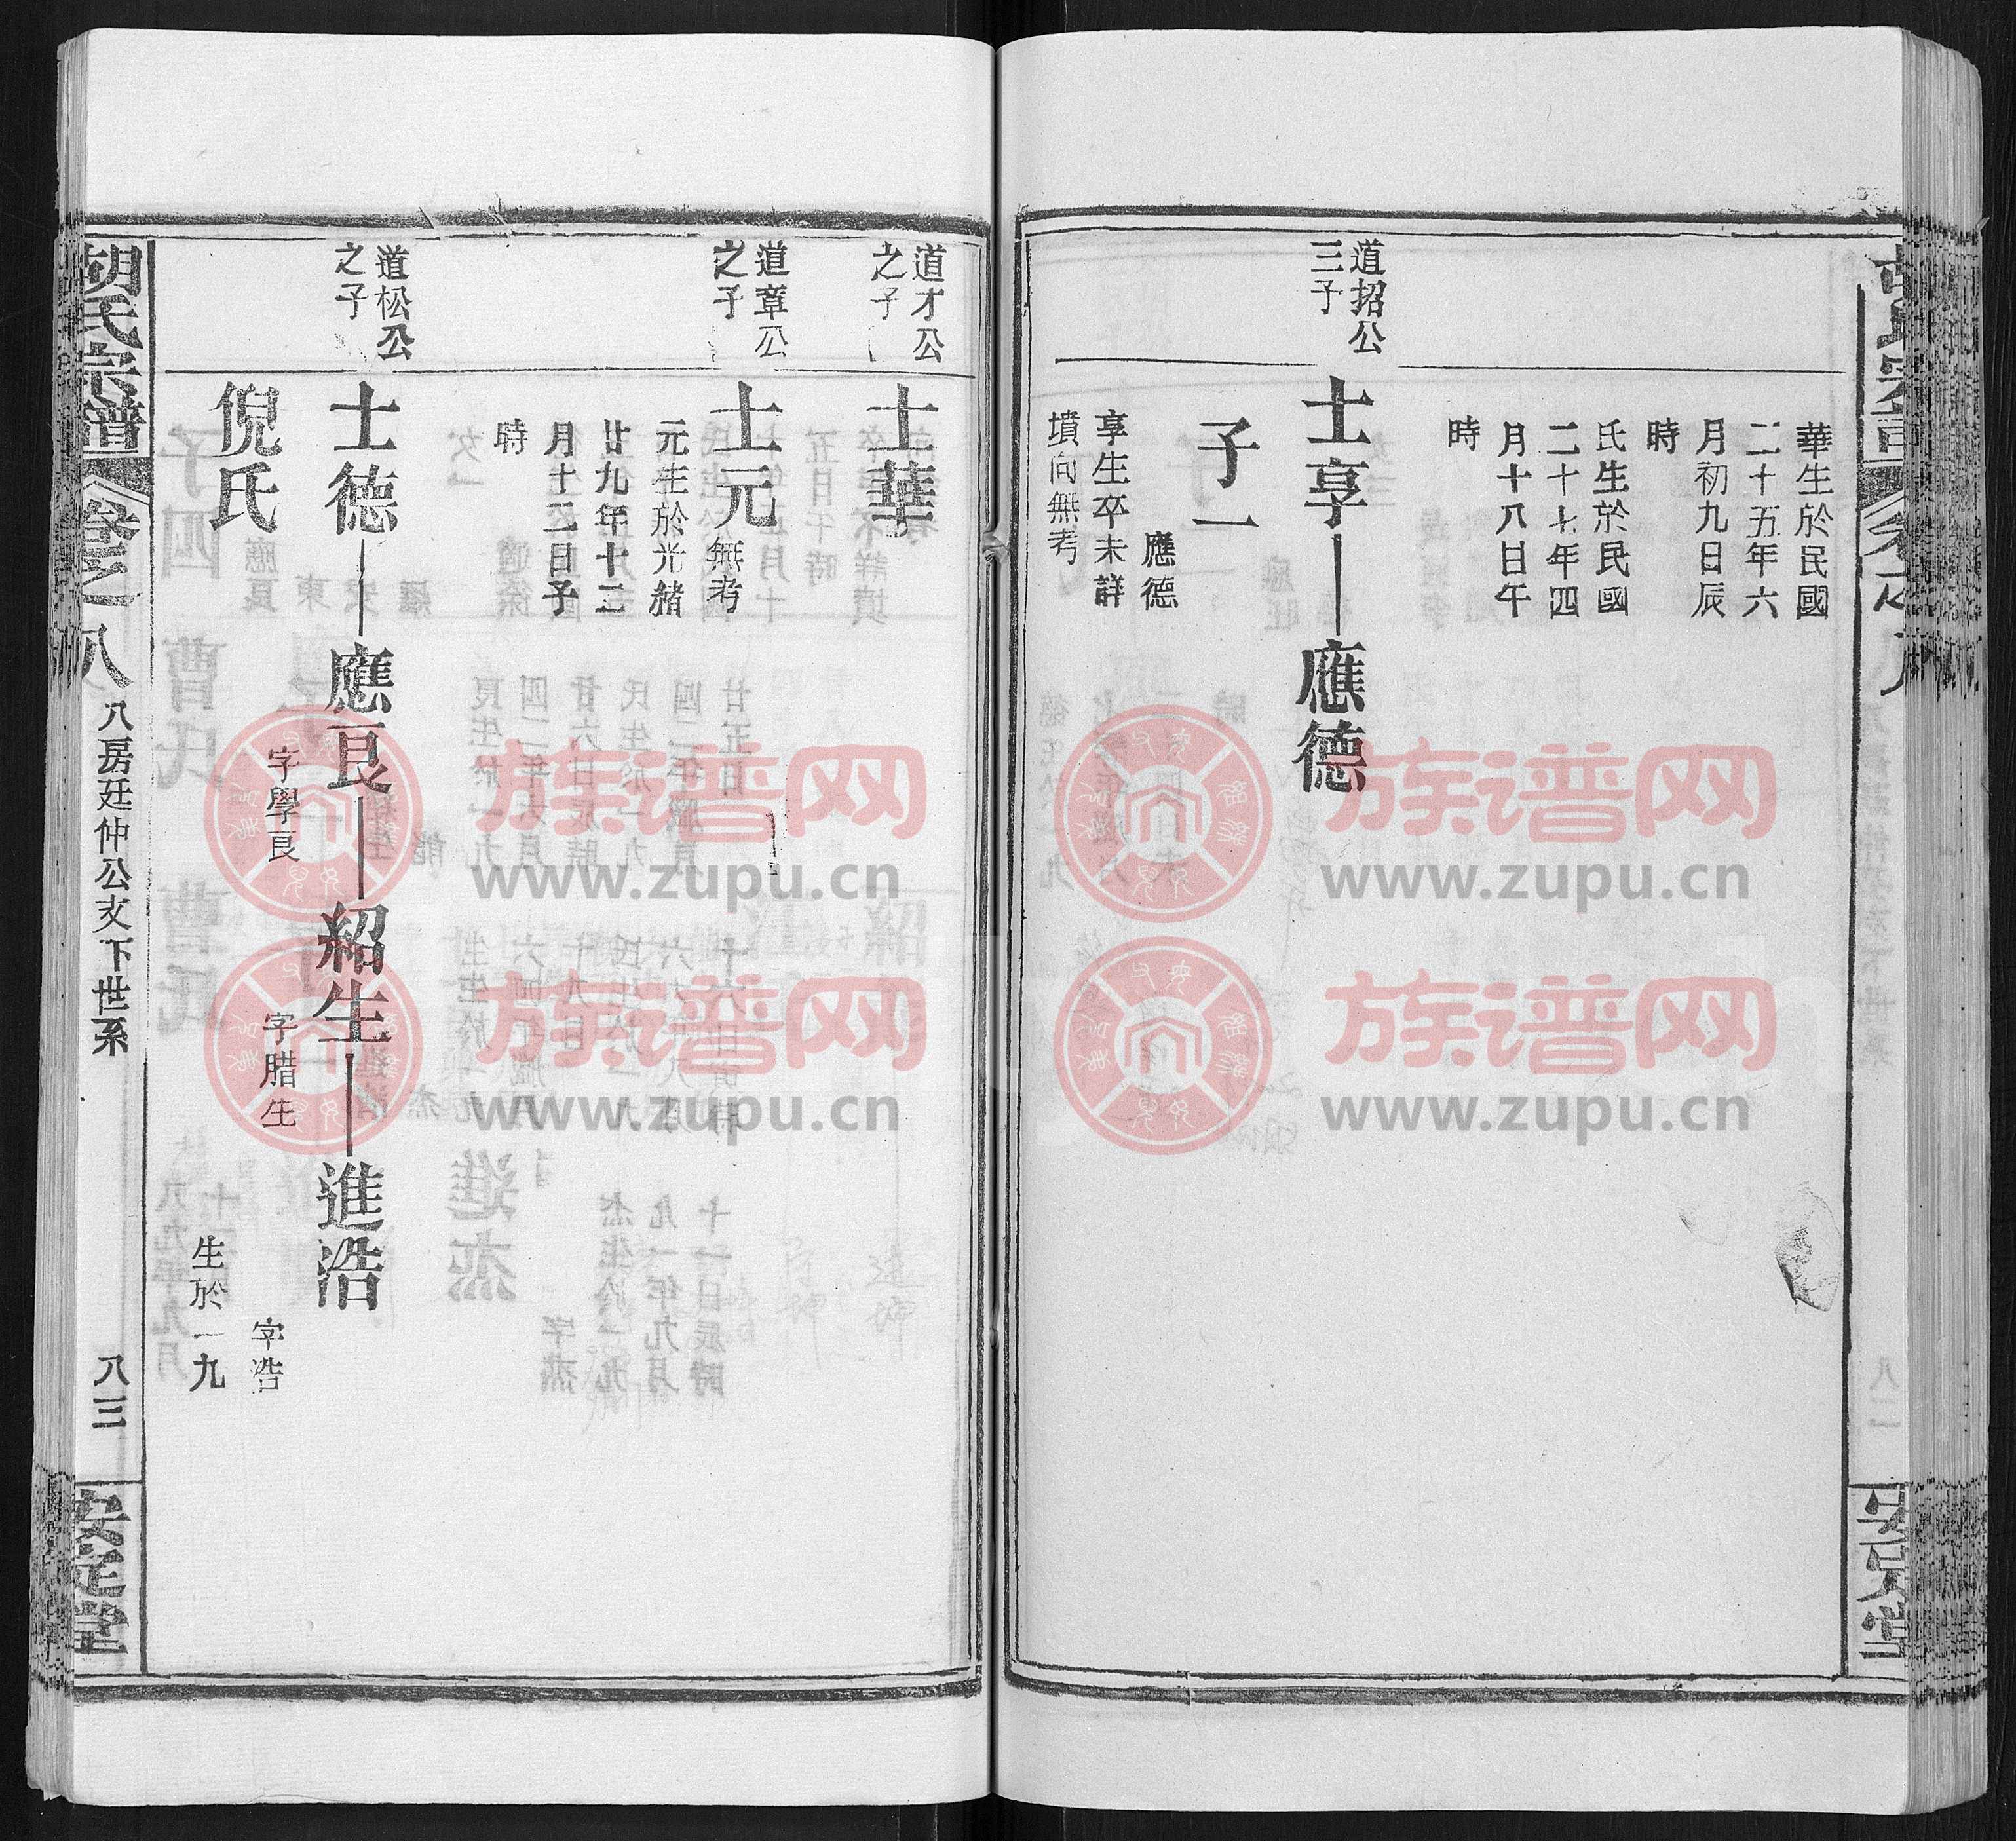 華生於民國
二十五年六
月初九日辰
時
氏生於民國
二十七年四
月十八日午
時
道招公
三子
士享
應德
子一
應德
享生卒未詳
墳向無考
安定堂
道才公
之子
士華
道章公
之子
士元
無考
元生於光緒
廿九年十二
月十二日子
時
道松公
之子
士德
應良
字學良
紹生
字腊生
進浩
字浩
倪氏
生於一九
胡氏宗譜
卷之八
八房廷仲公支下世系
八三
安定堂
族谱网
www.zupu.cn
族谱网
www.zupu.cn
族谱网
www.zupu.cn
族谱网
www.zupu.cn